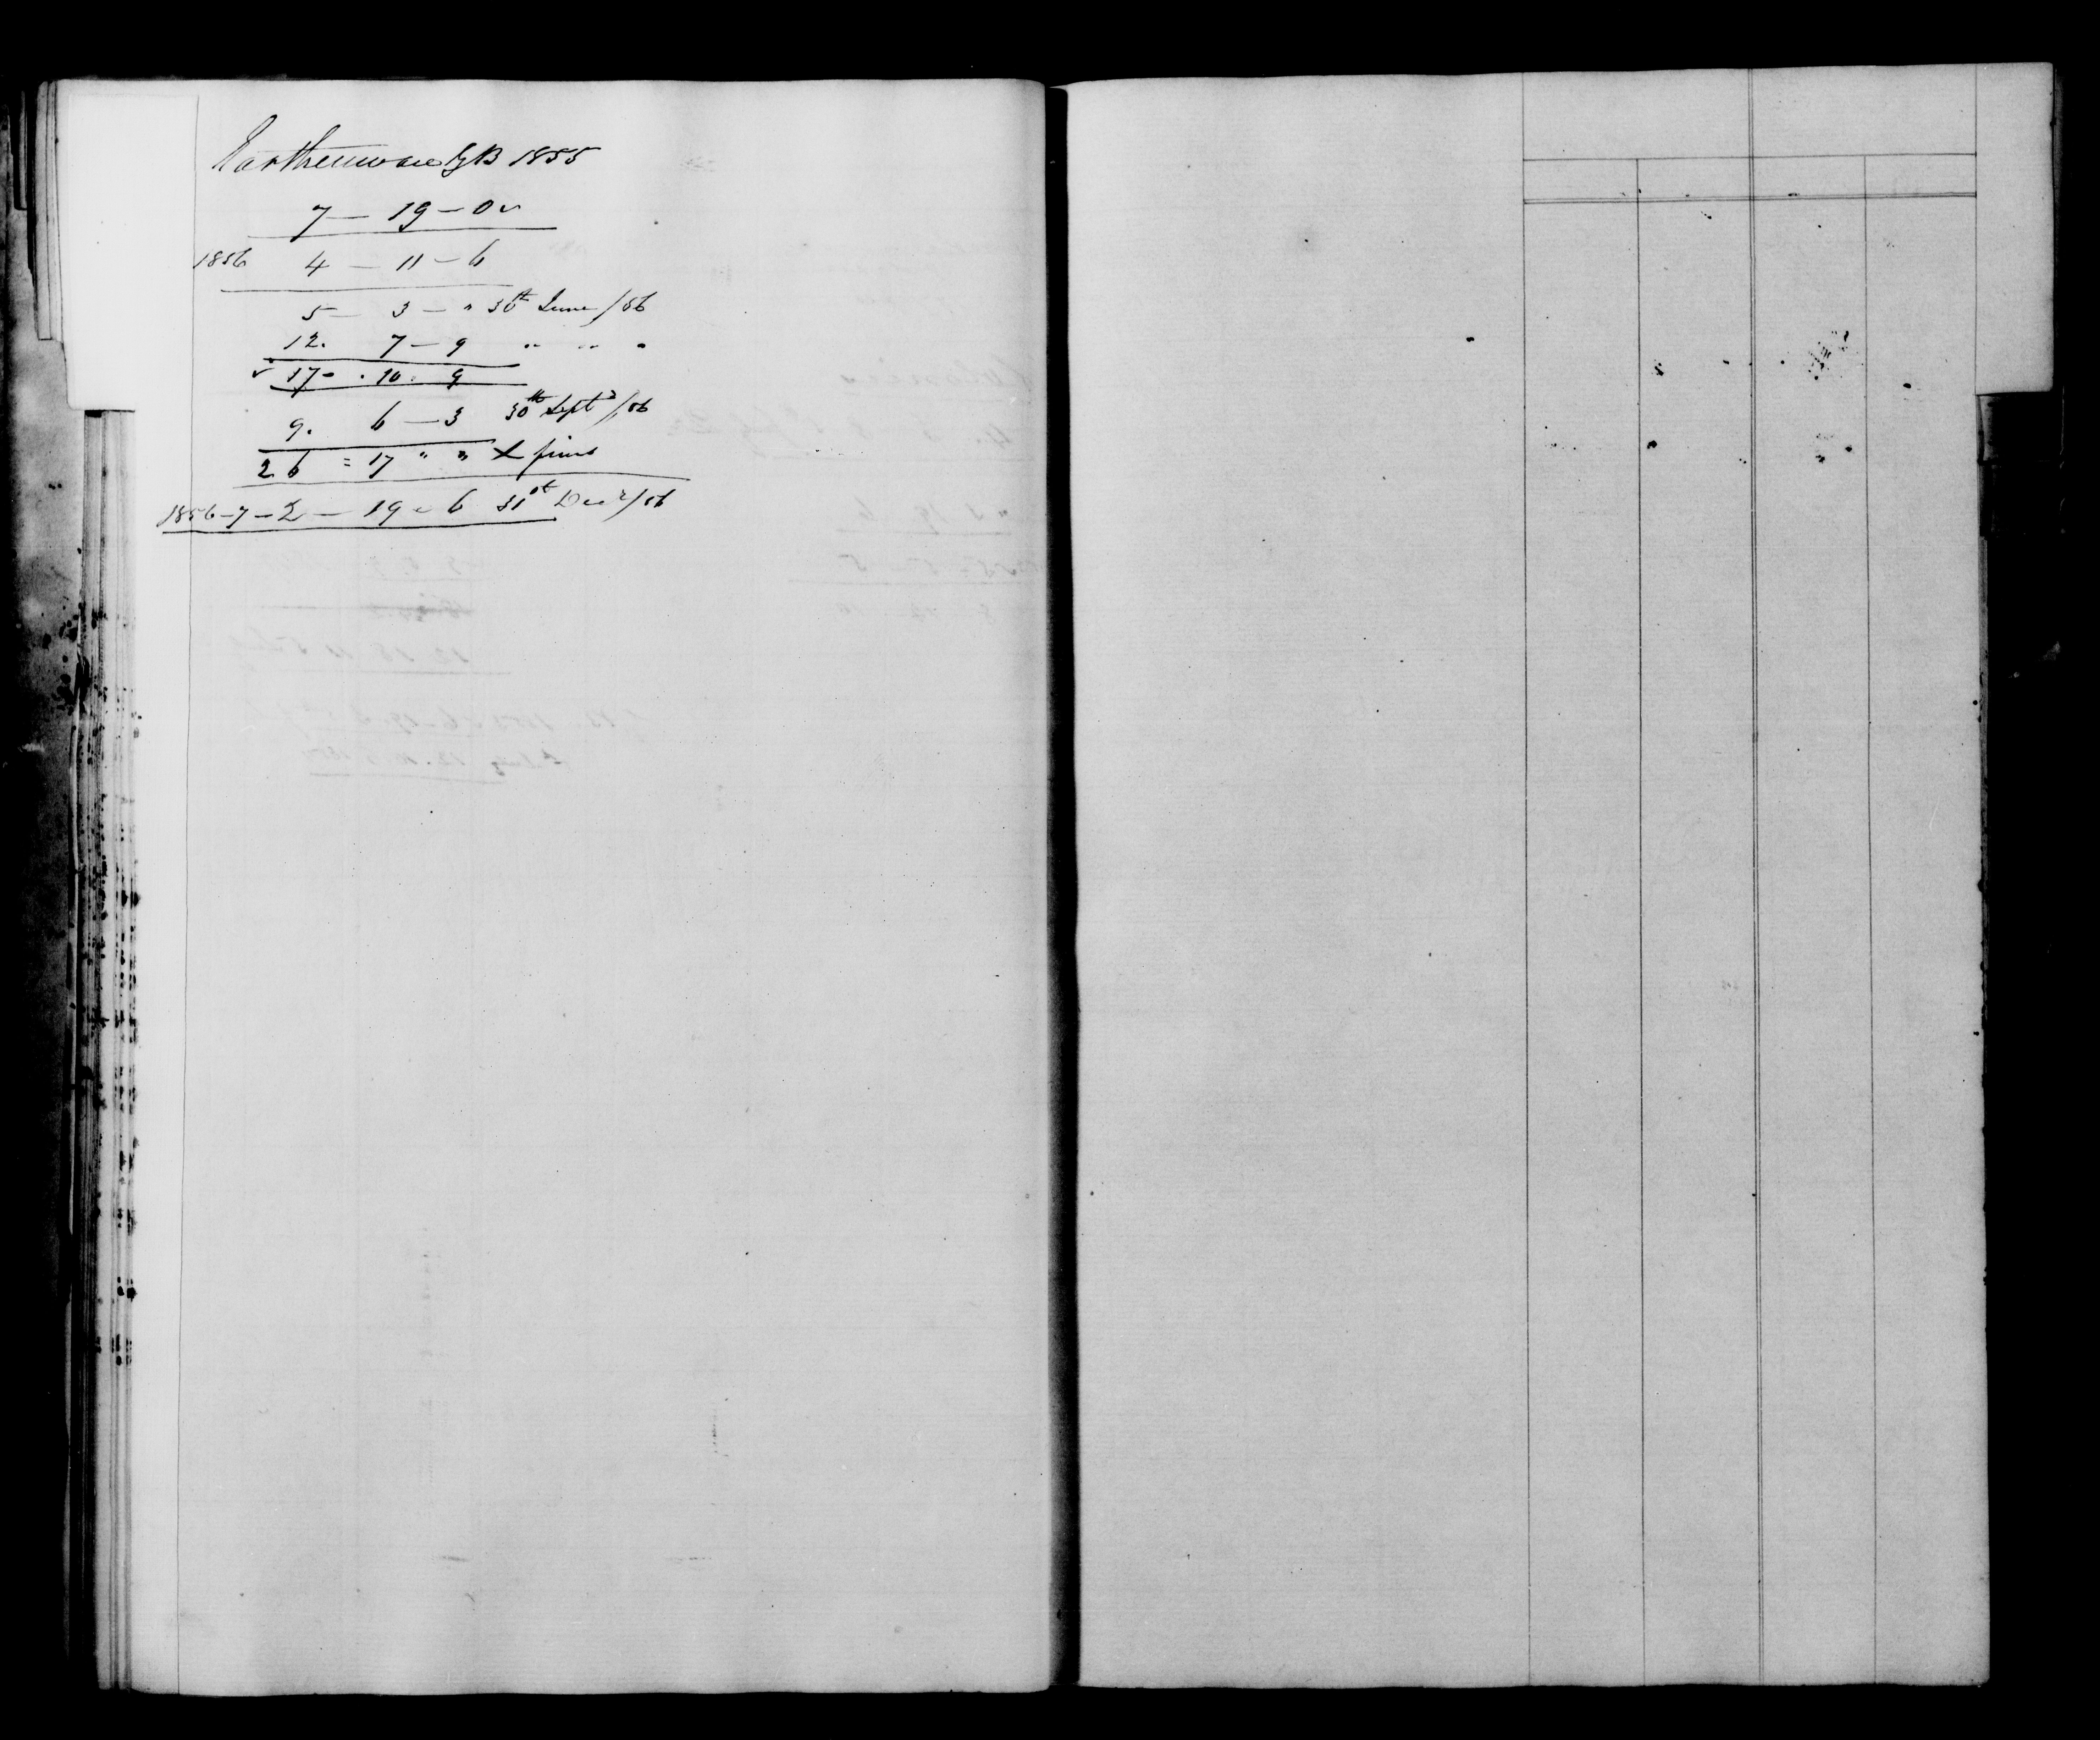 Earthenware GB 1855
7 — 19 — 0 ✓
1856 4 — 11 — 6
5 — 3 — " 30th June /56
12. 7 — 9 " " "
✓ 17 - . 10 . 9
9. 6 — 3 30th Sept r /56
26 = 17 " "
1856-7 - 2 — 19 - 6 31st Decr /56